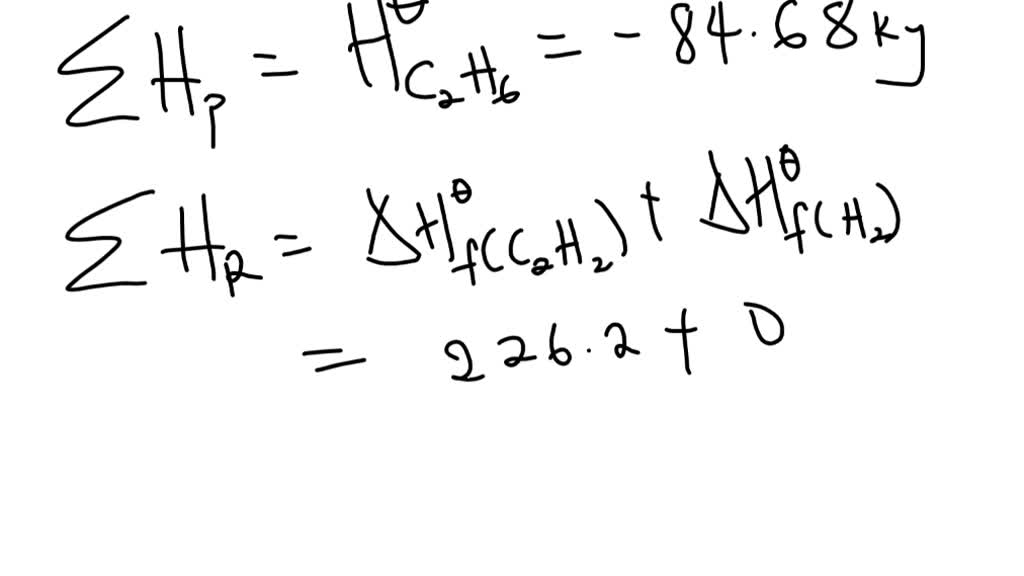 ΣH_p = H^θ_{C₂H₆} = - 84.68 kJ
ΣH_R = ΔH^θ_{f(C₂H₂)} + ΔH^θ_{f(H₂)}
= 226.2 + 0